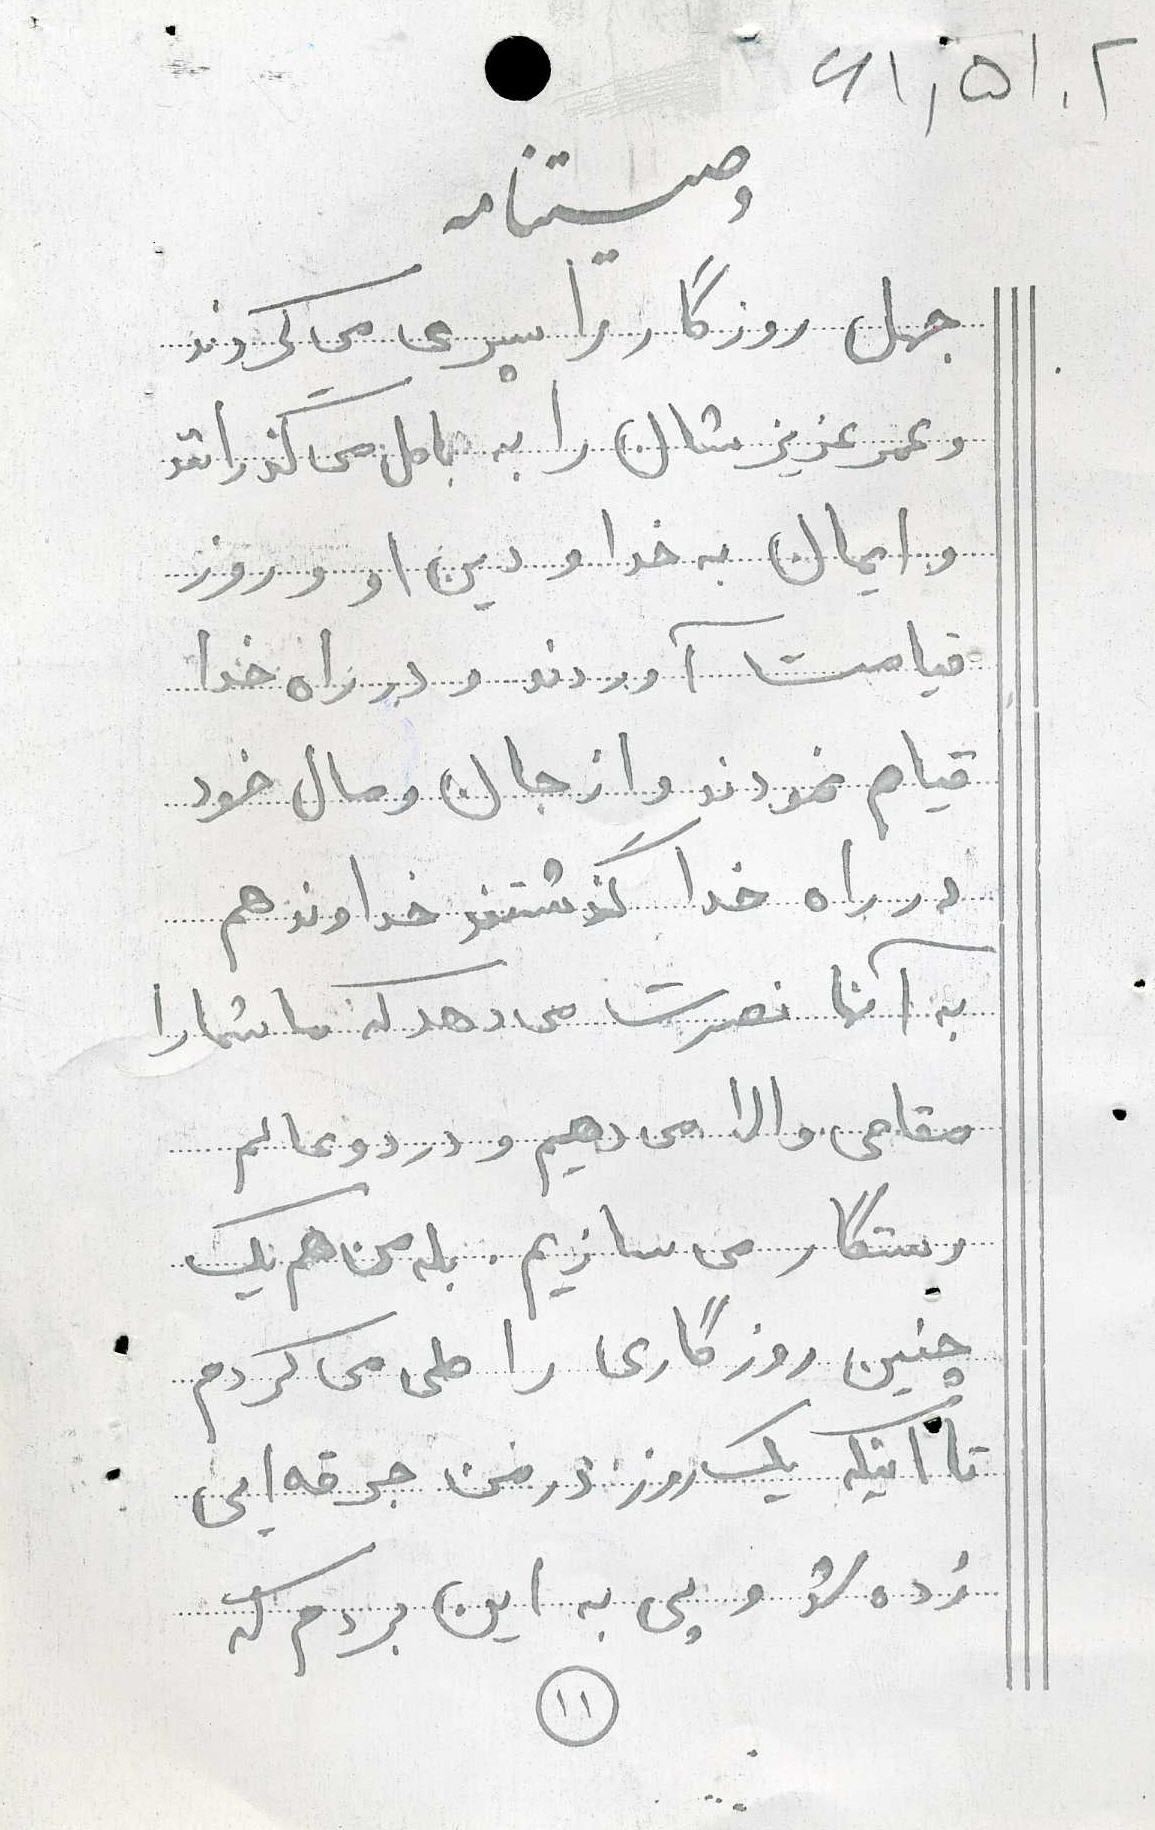 ۶۱،۵۱۰۲
وصیتنامه
جهل روزگار را سپری می کردند
و عمر عزیزشان را به باطل می گذراند
و ایمان به خدا و دین او و روز
قیامت آوردند و در راه خدا
قیام نمودند و از جان و مال خود
در راه خدا گذشتند خداوند هم
به آنها نصرت می دهد که ما شما را
مقامی والا می دهیم و در دو عالم
رستگار می سازیم. بله من هم یک
چنین روزگاری را طی می کردم
تا اینکه یک روز در من جرقه ایی
زده شد و پی به این بردم که
۱۱